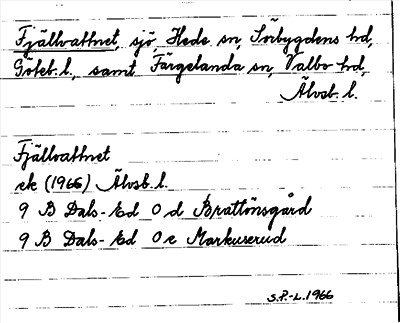 Fjällvattnet, sjö, Hede sn, Sörbygdens hd,
Göteb. l., samt Färgelanda sn, Valbo hd,
Älvsb. l.
Fjällvattnet
ek (1966) Älvsb. l.
9 B Dals-Ed 0 d Brattönsgård
9 B Dals-Ed 0 e Markuserud
S.P.-L. 1966